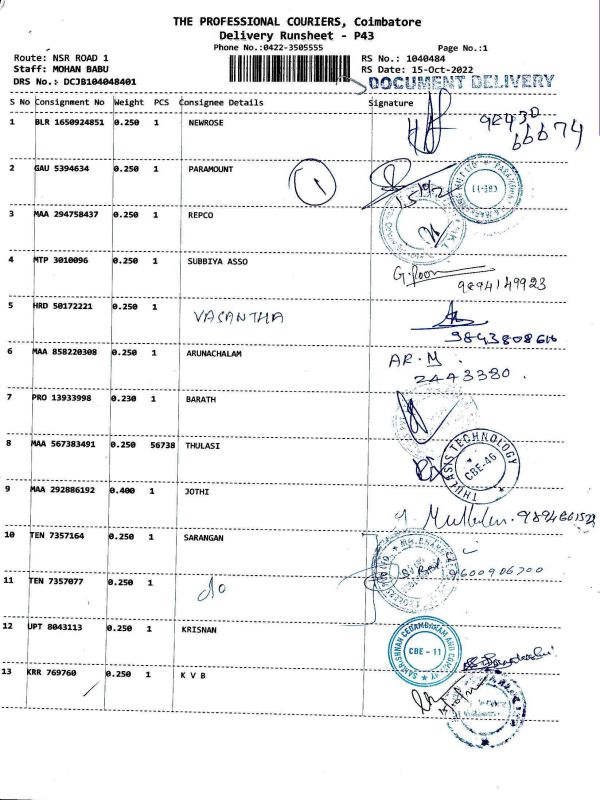 THE PROFESSIONAL COURIERS, Coimbatore
Delivery Runsheet - P43
Phone No.:0422-3505555
Page No.:1
Route: NSR ROAD 1
RS No.: 1040484
Staff: MOHAN BABU
RS Date: 15-Oct-2022
DRS No.: DCJB104048401
DOCUMENT DELIVERY
S No Consignment No Weight PCS Consignee Details Signature
1 BLR 1650924851 0.250 1 NEWROSE
98430
66674
2 GAU 5394634 0.250 1 PARAMOUNT
1
3 MAA 294758437 0.250 1 REPCO
4 MTP 3010096 0.250 1 SUBBIYA ASSO
9894149923
5 HRD 50172221 0.250 1 VASANTHA
6 MAA 858220308 0.250 1 ARUNACHALAM AR.M
2443380.
7 PRO 13933998 0.230 1 BARATH
8 MAA 567383491 0.250 56738 THULASI
THULASIS TECHNOLOGY
CBE-46
9 MAA 292886192 0.400 1 JOTHI
10 TEN 7357164 0.250 1 SARANGAN
9600906700
11 TEN 7357077 0.250 1 do
12 UPT 8043113 0.250 1 KRISNAN
CBE - 11
13 KRR 769760 0.250 1 K V B